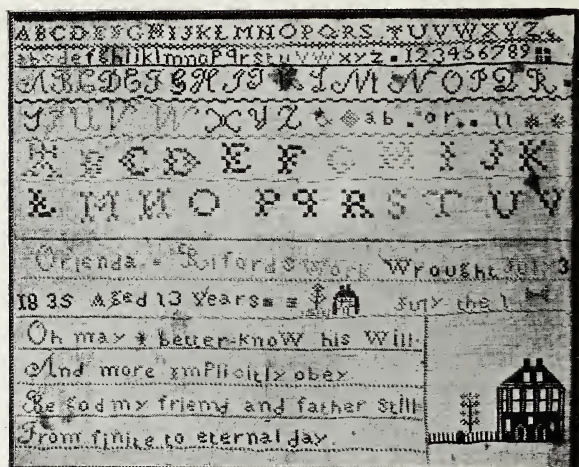 ABCDEFGHIJKLMNOPQRSTUVWXYZ
abcdefghijklmnopqrstuvwxyz.123456789
ABCDEFGHIJKLMNOPQR
STUVWXYZ ab.or..ll
ABCDEFGHIJK
LMNOPQRSTUV
Orienda Work Wrought July 3
1835 Aged 13 Years July the 1
Oh may I better know his Will
And more implicitly obey
Be God my friend and father Still
From finite to eternal day.